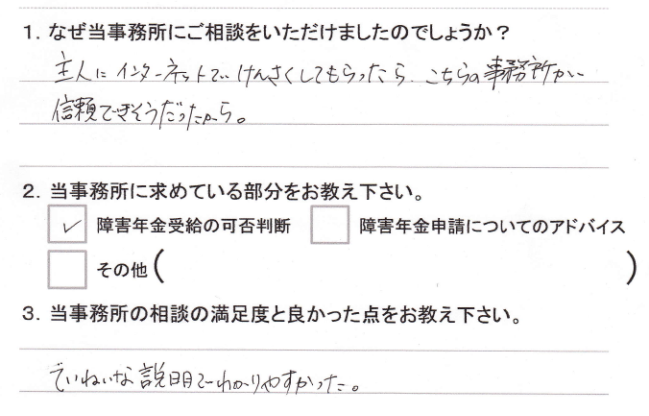 1. なぜ当事務所にご相談をいただけましたのでしょうか？
主人にインターネットでけんさくしてもらったら、こちらの事務所が
信頼できそうだったから。
2. 当事務所に求めている部分をお教え下さい。
✓ 障害年金受給の可否判断 障害年金申請についてのアドバイス
その他（ ）
3. 当事務所の相談の満足度と良かった点をお教え下さい。
ていねいな説明でわかりやすかった。